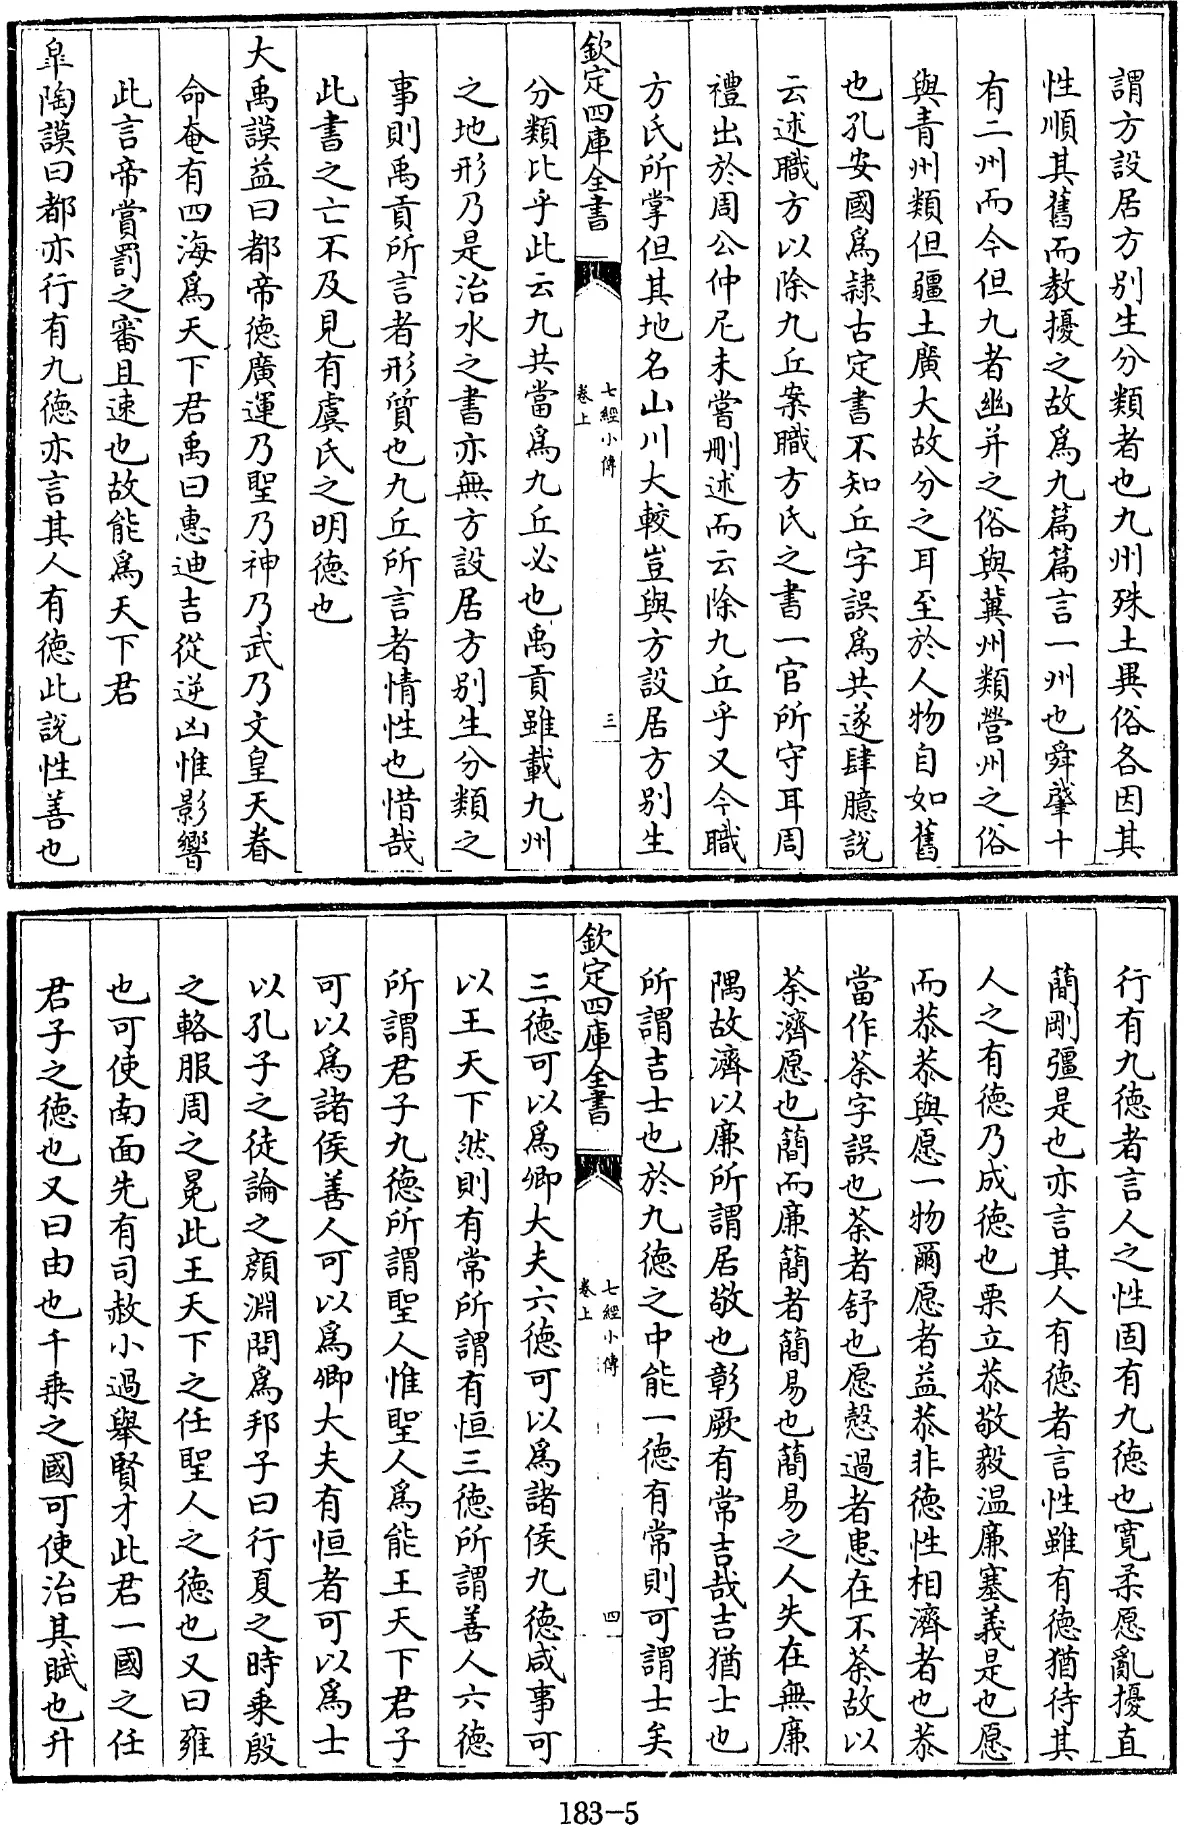 謂方設居方别生分類者也九州殊土異俗各因其
性順其舊而教擾之故爲九篇篇言一州也舜肇十
有二州而今但九者幽并之俗與冀州類營州之俗
與青州類但疆土廣大故分之耳至於人物自如舊
也孔安國爲隷古定書不知丘字誤爲共遂肆臆説
云述職方以除九丘案職方氏之書一官所守耳周
禮出於周公仲尼未嘗刪述而云除九丘乎又今職
方氏所掌但其地名山川大較豈與方設居方别生
欽定四庫全書
七經小傳
卷上
三
分類比乎此云九共當爲九丘必也禹貢雖載九州
之地形乃是治水之書亦無方設居方别生分類之
事則禹貢所言者形質也九丘所言者情性也惜哉
此書之亡不及見有虞氏之明德也
大禹謨益曰都帝德廣運乃聖乃神乃武乃文皇天眷
命奄有四海爲天下君禹曰惠迪吉從逆凶惟影響
此言帝賞罰之審且速也故能爲天下君
臯陶謨曰都亦行有九德亦言其人有德此説性善也
行有九德者言人之性固有九德也寬柔愿亂擾直
簡剛彊是也亦言其人有德者言性雖有德猶待其
人之有德乃成德也栗立恭敬毅温廉塞義是也愿
而恭恭與愿一物爾愿者益恭非德性相濟者也恭
當作荼字誤也荼者舒也愿慤過者患在不荼故以
荼濟愿也簡而廉簡者簡易也簡易之人失在無廉
隅故濟以廉所謂居敬也彰厥有常吉哉吉猶士也
所謂吉士也於九德之中能一德有常則可謂士矣
欽定四庫全書
七經小傳
卷上
四
三德可以爲卿大夫六德可以爲諸侯九德咸事可
以王天下然則有常所謂有恒三德所謂善人六德
所謂君子九德所謂聖人惟聖人爲能王天下君子
可以爲諸侯善人可以爲卿大夫有恒者可以爲士
以孔子之徒論之顔淵問爲邦子曰行夏之時乘殷
之輅服周之冕此王天下之任聖人之德也又曰雍
也可使南面先有司赦小過舉賢才此君一國之任
君子之德也又曰由也千乘之國可使治其賦也升
183-5